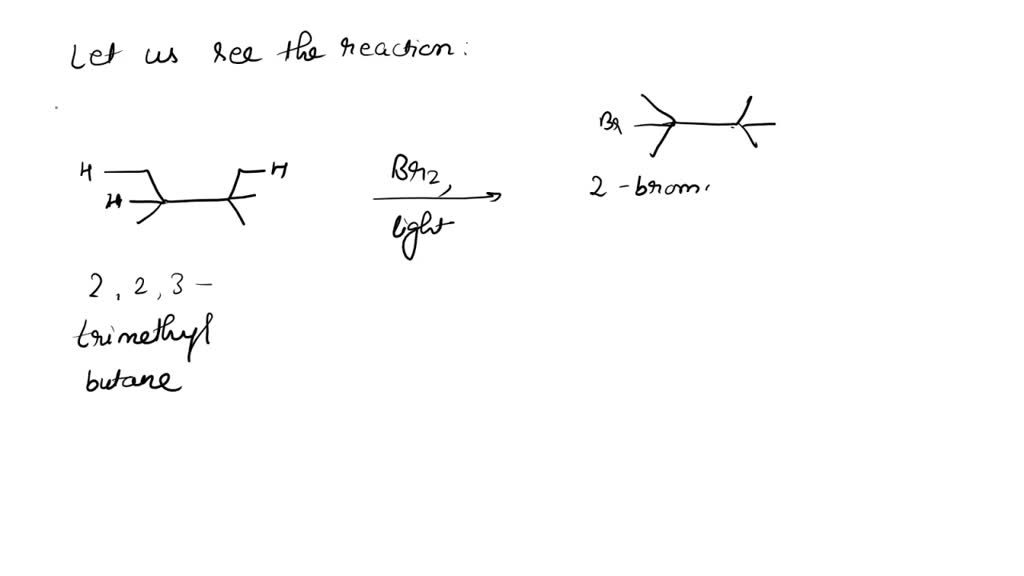 Let us see the reaction:
Br
H H
H
Br2,
light
2-brom
2, 2, 3-
trimethyl
butane